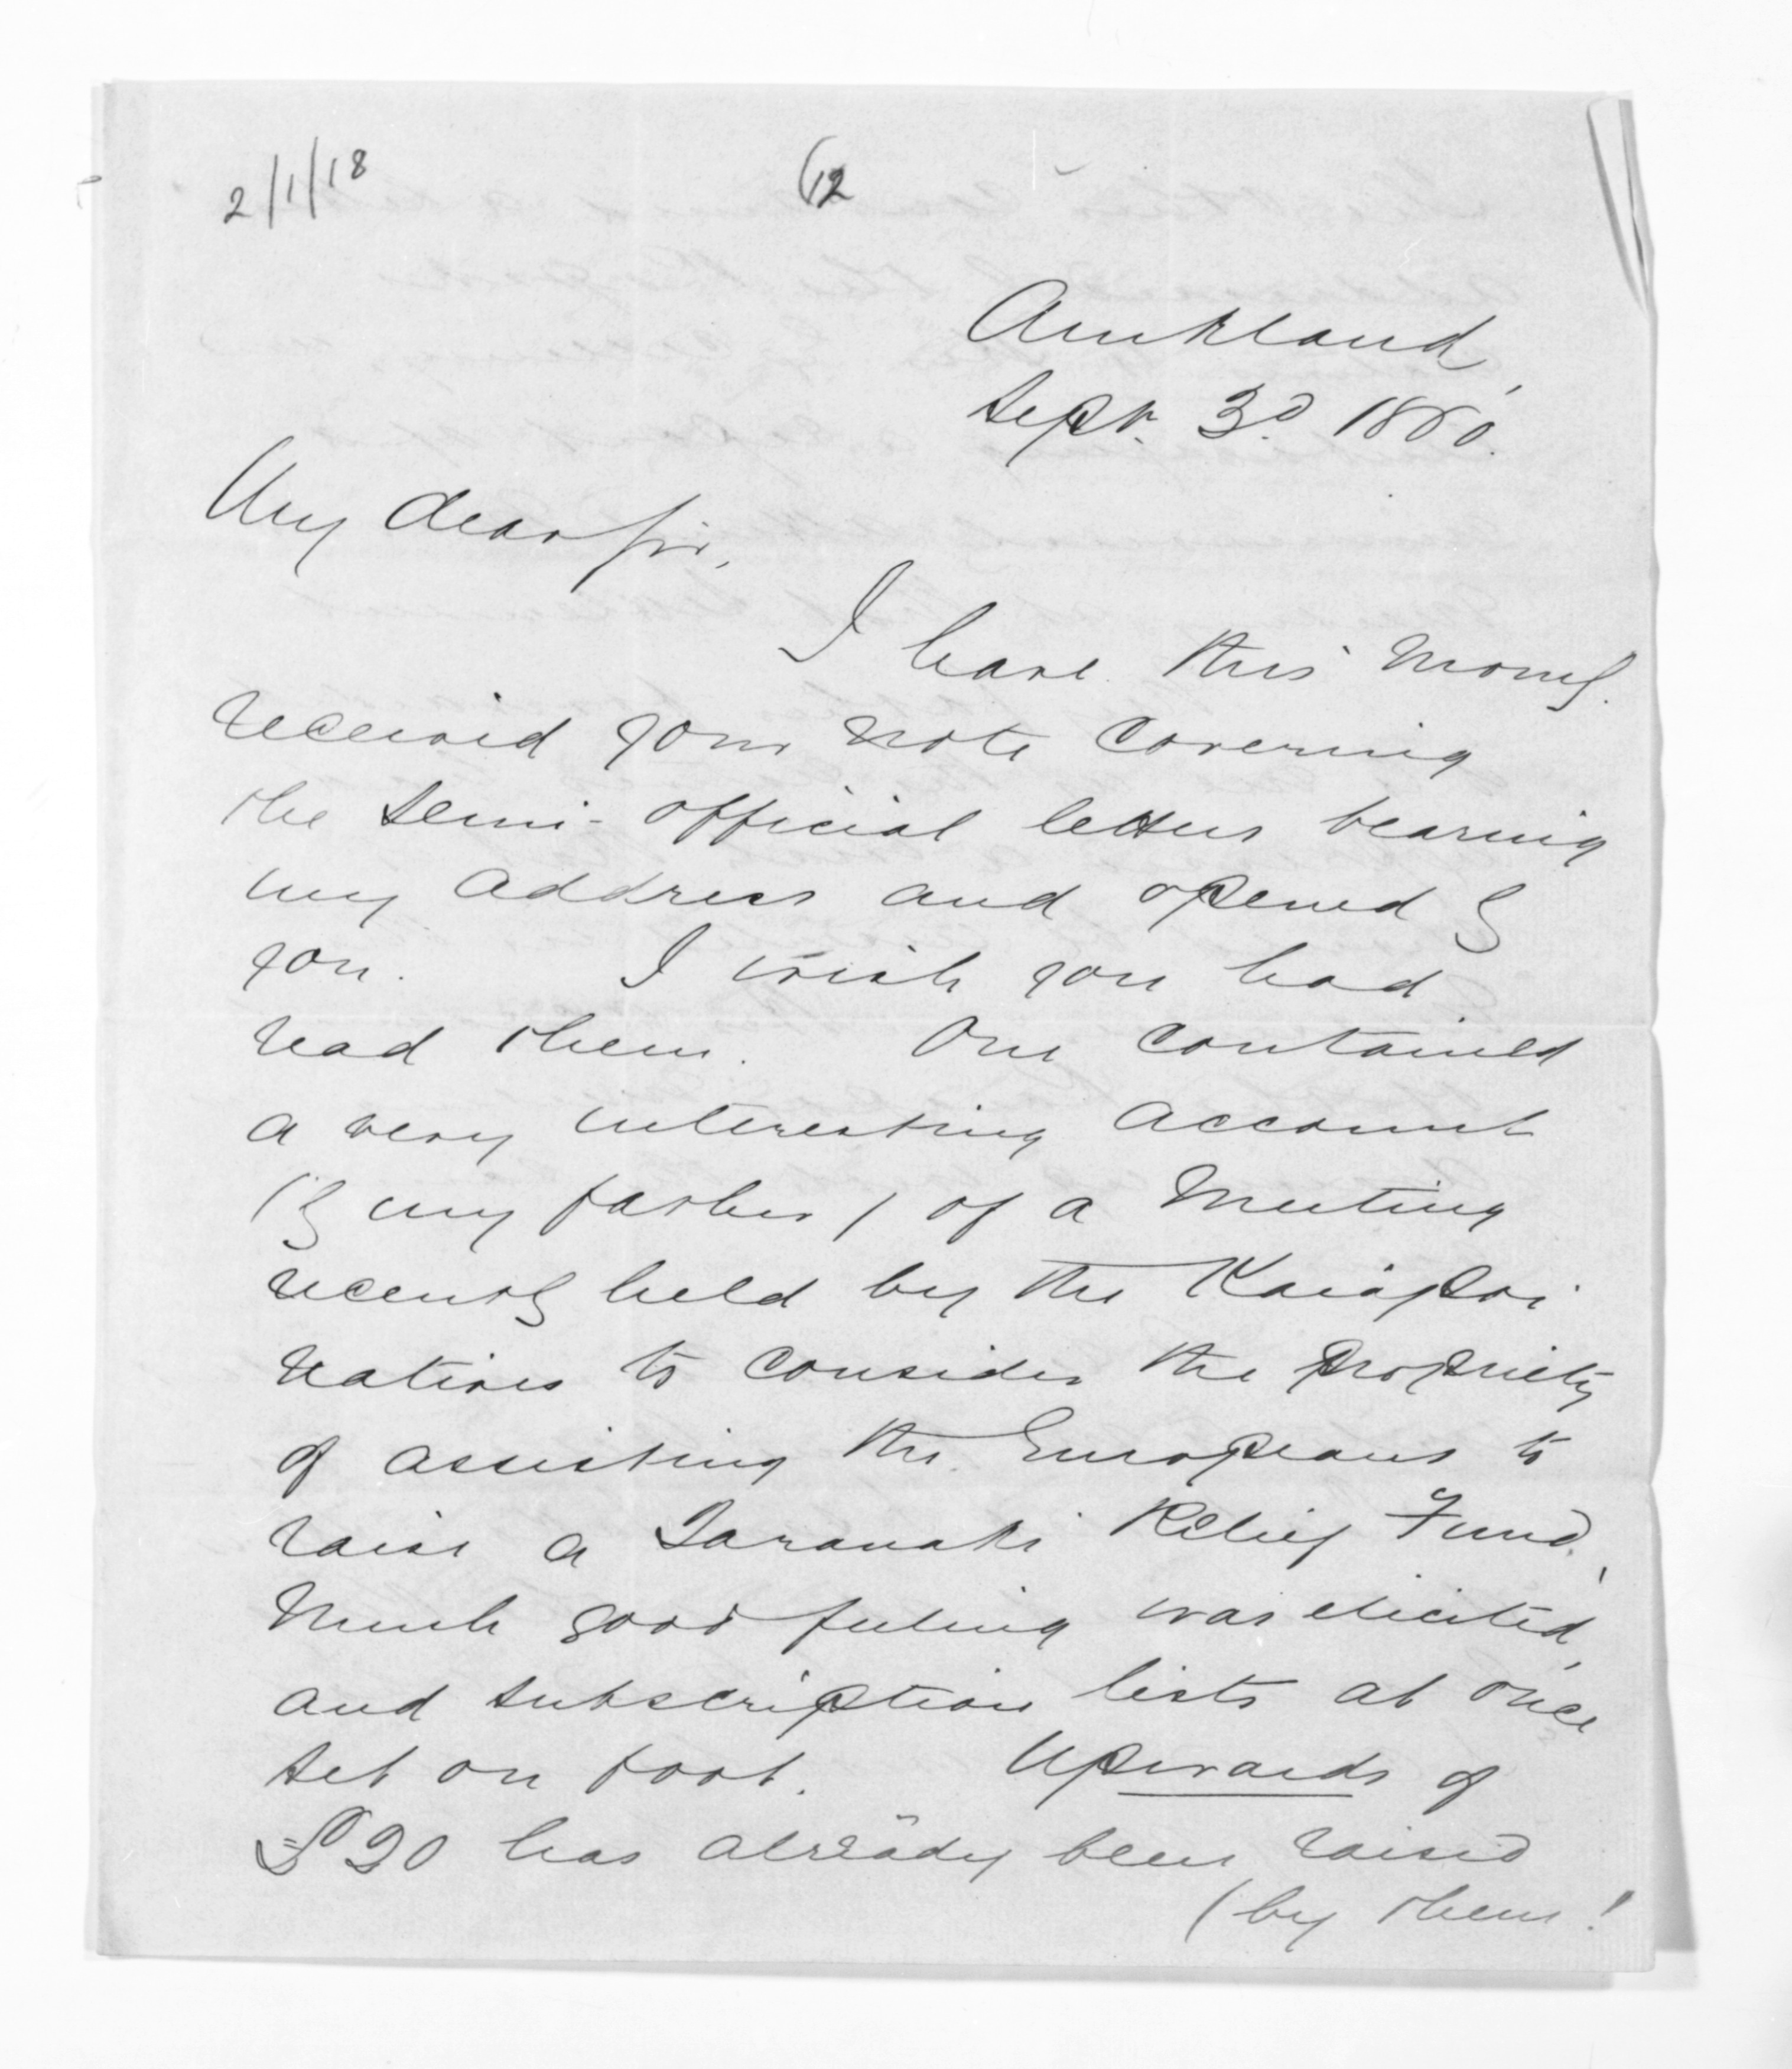 2/1/18
(12
Auckland,
Sept. 3d. 1860.
My dear Sir,
I have this morng.
received your note covering
the semi-official letters bearing
my address and opened by
you. I wish you had
read them. One contained
a very interesting account
(by my father) of a meeting
recently held by the Kaiapoi
natives to consider the propriety
of assisting the Europeans to
raise a Taranaki Relief Fund.
Much good feeling was elicited,
and subscription lists at once
set on foot. Upwards of
£20 has already been raised
(by them!